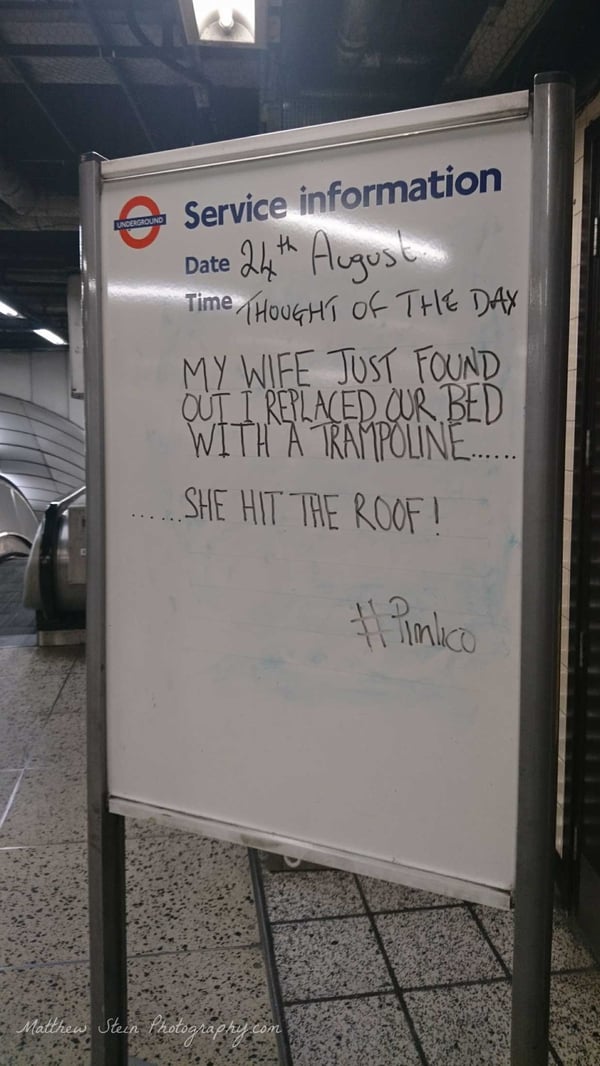 UNDERGROUND
Service information
Date 24th August.
Time THOUGHT OF THE DAY
MY WIFE JUST FOUND
OUT I REPLACED OUR BED
WITH A TRAMPOLINE......
......SHE HIT THE ROOF!
#Pimlico
Matthew Stein Photography.com